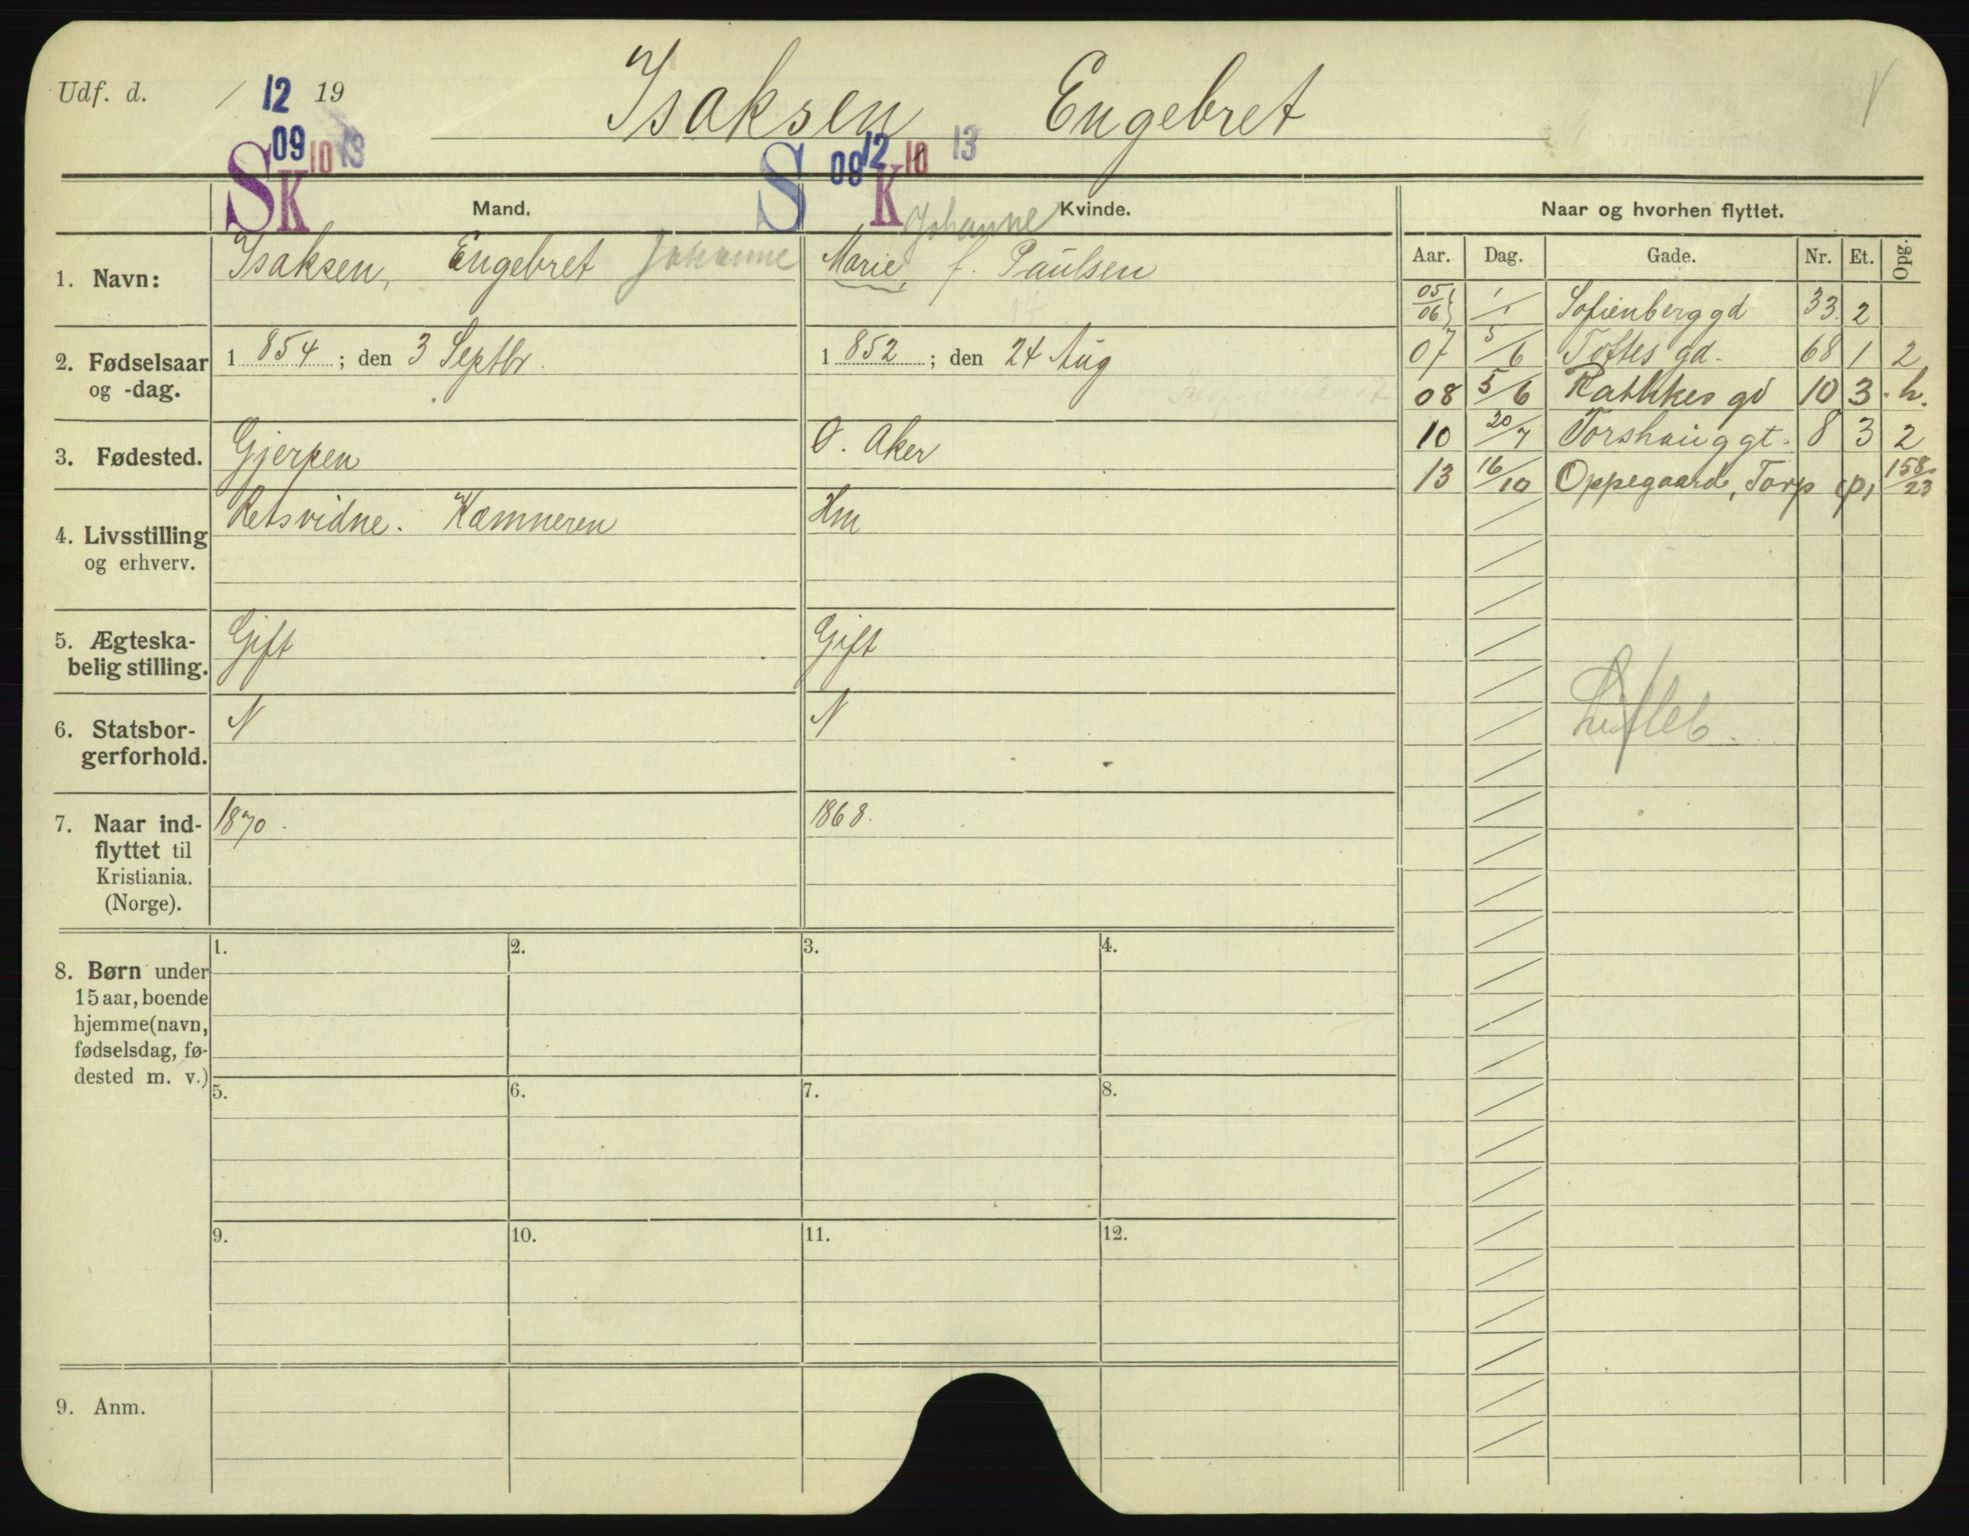 Udf. d. / 12 19
Isaksen Engebret
S 09 K 10 13
S 08 12 K 10 13
Mand.
Kvinde.
Naar og hvorhen flyttet.
Aar. Dag. Gade. Nr. Et. Opg.
1. Navn: Isaksen, Engebret Johanne
Johanne
Marie, f. Paulsen
2. Fødselsaar og -dag. 1 854 ; den 3 Septbr.
1 852 ; den 24 Aug
3. Fødested. Gjerpen
Ø. Aker
4. Livsstilling og erhverv. Retsvidne. Kæmneren
Hm
5. Ægteska-
belig stilling. Gift
Gift
6. Statsbor-
gerforhold. N
N
7. Naar ind-
flyttet til
Kristiania.
(Norge).
1870.
1868.
8. Børn under
15 aar, boende
hjemme (navn,
fødselsdag, fø-
dested m. v.)
1. 2. 3. 4.
5. 6. 7. 8.
9. 10. 11. 12.
9. Anm.
05/06 1/1 Sofienberggd 33. 2
07 5/6 Toftes gd. 68 1 2
08 5/6 Rathkes gd 10 3 . h.
10 20/7 Torshauggt. 8 3 2
13 16/10 Oppegaard, Torp 158/23